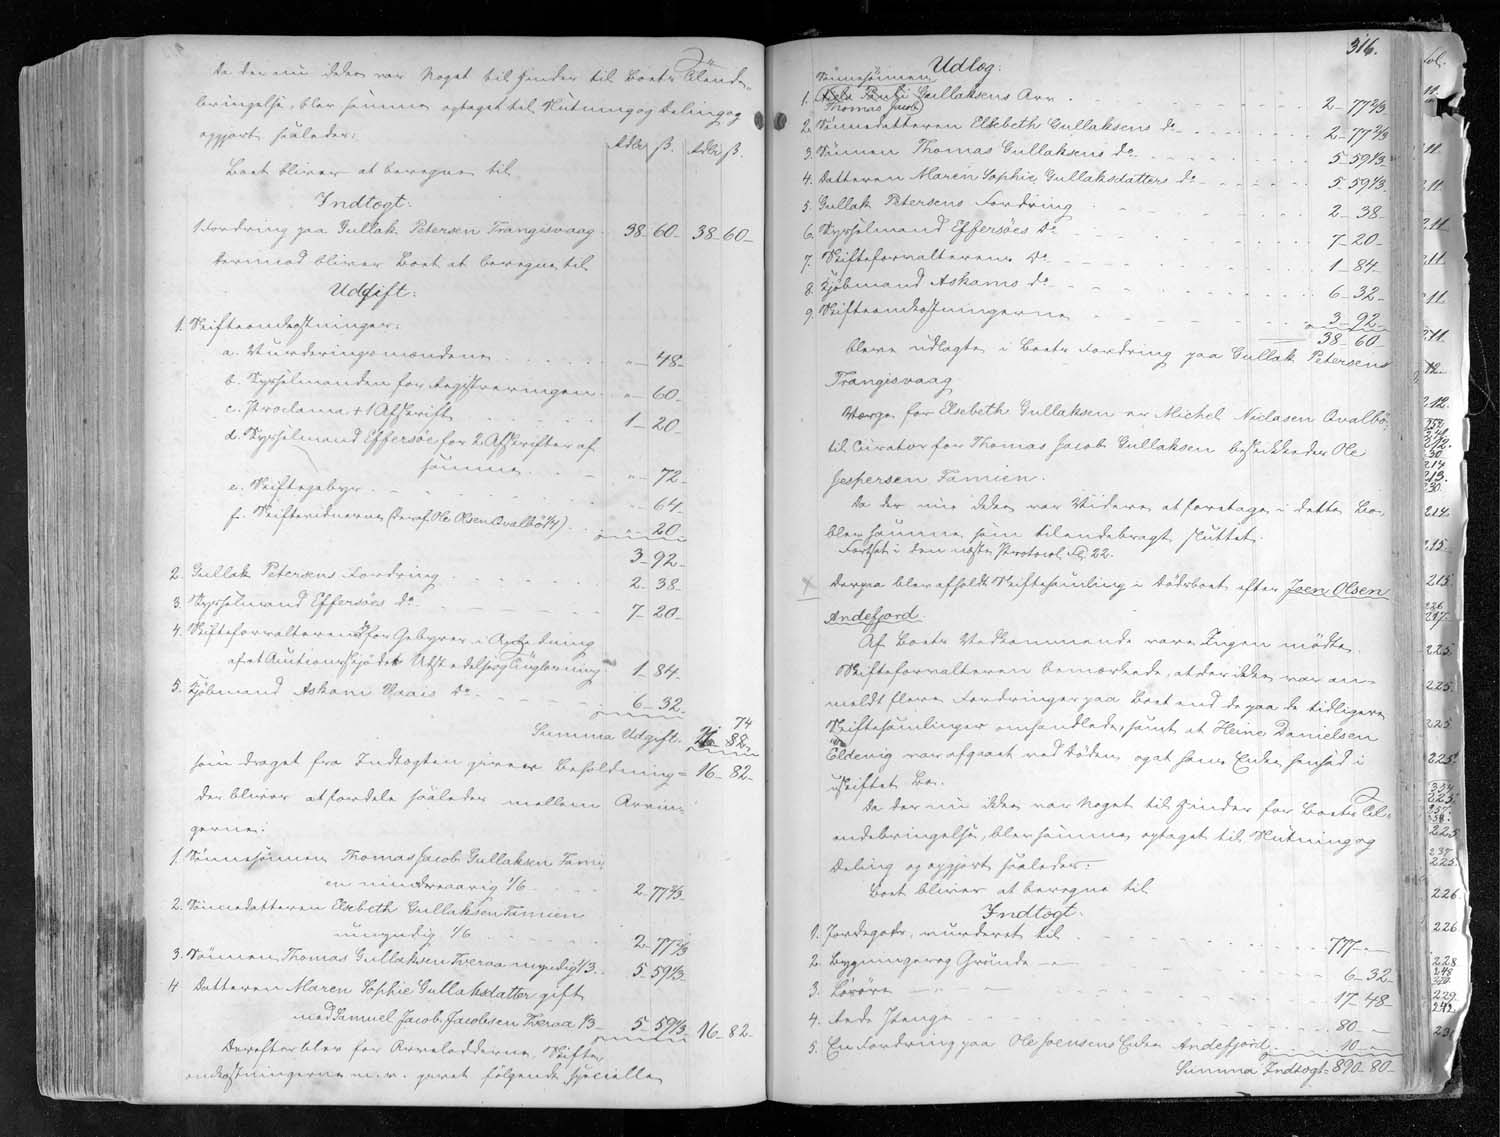 Da der nu ikke var Noget til Hinder til Boets Tilende-
bringelse, blev samme optaget til Slutning og Deling og
opgjort saaledes:
Rdlr β. Rdlr β.
Boet bliver at beregne til
Indtægt:
1. Fordring paa Gullak Petersen Trangisvaag 38-60- 38-60-
hermod bliver Boet at beregne til
Udgift:
1. Skifteomkostninger:
a. Vurderingsmændene " - 48-
b. Sysselmanden for Registreringen " - 60-
c. Proclama + 1 Afskrift 1-20-
d. Sysselmand Effersøe for 2 Afskrifter af
samme " - 72-
e. Skiftegebyr " - 64-
f. Skiftevidnerne (Deraf Ole Olsen Qvalbö ¼) " - 20
3-92-
2. Gullak Petersens Fordring 2-38-
3. Sysselmand Effersöes do 7-20-
4. Skifteforvalterens for Gebyrer i Anledning
af et Auctionsskjödets Udstedelse og Tinglæsning 1-84-
5. Kjöbmand Askam Waais do 6-32-
Summa Udgift. 74
som draget fra Indtægten giver Beholdning = 16-82-
der bliver at fordele saaledes mellem Arvin-
gerne:
1. Sönnesönnen Thomas Jacob Gullaksen Fami-
en mindreaarig 1/6 2-77⅔
2. Sönnedatteren Elsebeth Gullaksen Famien
umyndig 1/6 2-77⅔
3. Sönnen Thomas Gullaksen Tveraa myndig 1/3 5-59⅓
4 Datteren Maren Sophie Gullaksdatter gift
med Samuel Jacob Jacobsen Tveraa 1/3 5-59⅓ 16-82
Derefter blev for Arvelodderne, Skifte-
omkostningerne m. v. gjort fölgende specielle
316.
Udlæg:
Sönnesönnen
1. Gullaksens Arv 2-77⅔
Thomas Jacob
2. Sönnedatteren Elsebeth Gullaksens do 2-77⅔
3. Sönnen Thomas Gullaksens do 5-59⅓
4. Datteren Maren Sophie Gullaksdatters do 5-59⅓
5. Gullak Petersens Fordring 2-38-
6. Sysselmand Effersöes do 7-20-
7. Skifteforvalterens do 1-84-
8. Kjöbmand Askams do 6-32-
9. Skifteomkostningerne 3-92-
38-60-
bleve udlagte i Boets Fordring paa Gullak Petersens
Trangisvaag
Værge for Elsebeth Gullaksen er Michel Niclasen Qvalbö,
til Curator for Thomas Jacob Gullaksen beskikkedes Ole
Jespersen Famien.
Da der nu ikke var Videre at foretage i dette Bo,
blev samme som tilendebragt sluttet.
Fortsat i den næste Protocol, Fol 22.
Derpaa blev afholdt Skiftesamling i Dödsboet efter Joen Olsen
Andefjord.
Af Boets Vedkommende vare Ingen mödte.
Skifteforvalteren bemærkede, at der ikke var an-
meldt flere Fordringer paa Boet end de paa de tidligere
Skiftesamlinger omhandlede, samt at Heine Danielsen
Eldevig var afgaaet ved Döden og at hans Enke hensad i
uskiftet Bo.
Da der nu ikke var Noget til Hinder for Boets Til-
endebringelse, blev samme optaget til Slutning og
Deling og opgjort saaledes:
Boet bliver at beregne til
Indtægt:
1. Jordegods, vurderet til 777-"-
2. Bygninger og Grunde -"- 6-32-
3. Lösöre -"- 17-48-
4. Penge 80-"-
5. En Fordring paa Ole Joensens Enke Andefjord 10-"-
Summa Indtægt = 890-80-